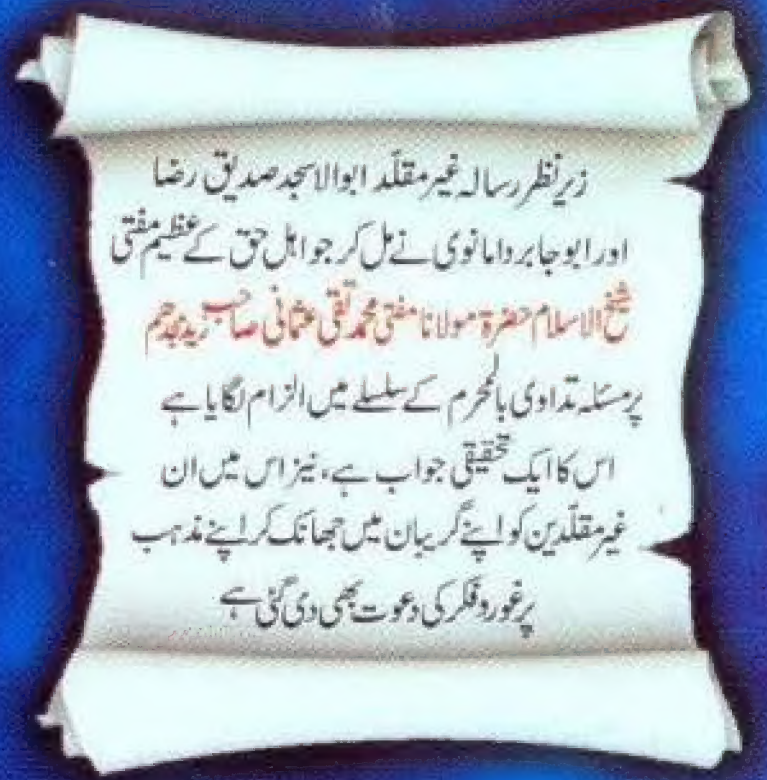 زیرِ نظر رسالہ غیر مقلّد ابوالاسجد صدیق رضا
اور ابو جابر دامانوی نے مل کر جو اہل حق کے عظیم مفتی
شیخ الاسلام حضرۃ مولانا مفتی محمد تقی عثمانی صاحب زید مجدہم
پر مسئلہ تداوی بالمحرم کے سلسلے میں الزام لگایا ہے
اس کا ایک تحقیقی جواب ہے، نیز اس میں ان
غیر مقلّدین کو اپنے گریبان میں جھانک کر اپنے مذہب
پر غور و فکر کی دعوت بھی دی گئی ہے